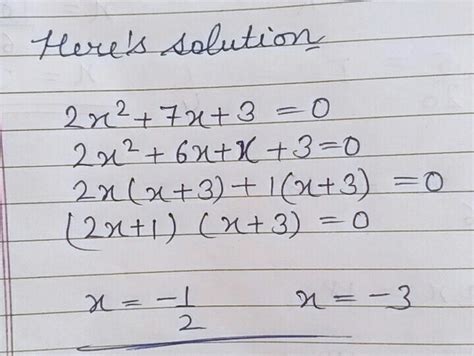 Here's solution
2x² + 7x + 3 = 0
2x² + 6x + x + 3 = 0
2x(x + 3) + 1(x + 3) = 0
(2x + 1) (x + 3) = 0
x = -1/2 x = -3